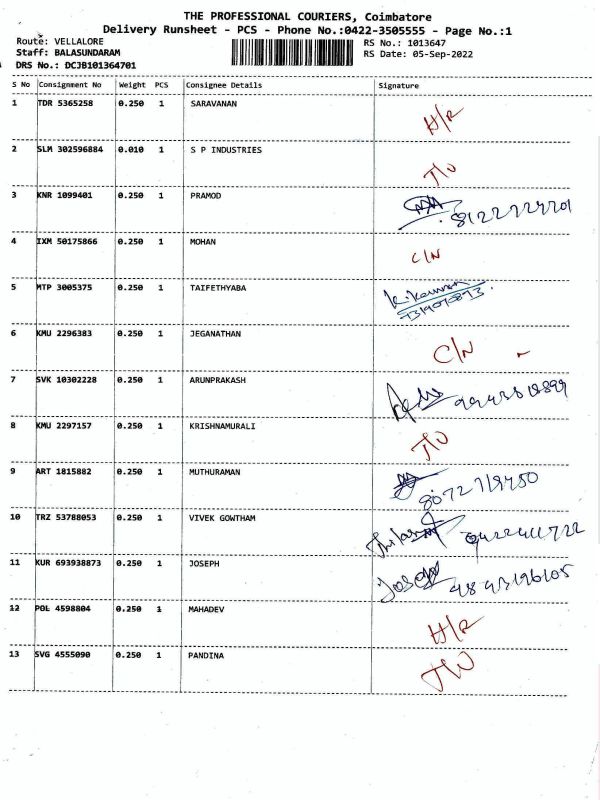 THE PROFESSIONAL COURIERS, Coimbatore
Delivery Runsheet - PCS - Phone No.:0422-3505555 - Page No.:1
Route: VELLALORE RS No.: 1013647
Staff: BALASUNDARAM RS Date: 05-Sep-2022
DRS No.: DCJB101364701
S No Consignment No Weight PCS Consignee Details Signature
1 TDR 5365258 0.250 1 SARAVANAN H/R
2 SLM 302596884 0.010 1 S P INDUSTRIES
3 KNR 1099401 0.250 1 PRAMOD
4 IXM 50175866 0.250 1 MOHAN C/N
5 MTP 3005375 0.250 1 TAIFETHYABA
6 KMU 2296383 0.250 1 JEGANATHAN C/N
7 SVK 10302228 0.250 1 ARUNPRAKASH
8 KMU 2297157 0.250 1 KRISHNAMURALI
9 ART 1815882 0.250 1 MUTHURAMAN
10 TRZ 53788053 0.250 1 VIVEK GOWTHAM 9422411722
11 KUR 693938873 0.250 1 JOSEPH Joseph
12 POL 4598804 0.250 1 MAHADEV H/R
13 SVG 4555090 0.250 1 PANDINA